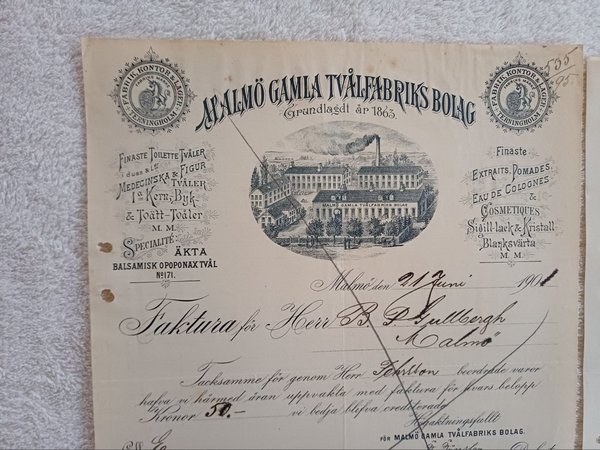 535
95
FABRIK, KONTOR & LAGER
TERNINGHOLM
MALMÖ GAMLA TVÅLFABRIKS BOLAG
Grundlagdt år 1863.
FABRIK, KONTOR & LAGER
TERNINGHOLM
FINASTE TOILETTE TVÅLER
i duss. &
MEDECINSKA & FIGUR
TVÅLER
1a KERN, BYK
& TOATT-TVÅLER
M. M.
SPECIALITÉ:
ÄKTA
BALSAMISK OPOPONAX TVÅL
No 171.
MALMÖ GAMLA TVÅLFABRIKS BOLAG
Finaste
EXTRAITS, POMADES
EAU DE COLOGNES
&
COSMETIQUES
Sigill-lack & Kristall
Blanksvärta
M. M.
Malmö den 21 Juni 1901
Faktura för Herr B. P. Gullbergh
Malmö
Tacksamme för genom Herr beordrade varor
hafva vi härmed äran uppvakta med faktura för hvars belopp
Kronor 50.- vi bedja blifva crediterade
Högaktningsfullt
FÖR MALMÖ GAMLA TVÅLFABRIKS BOLAG.